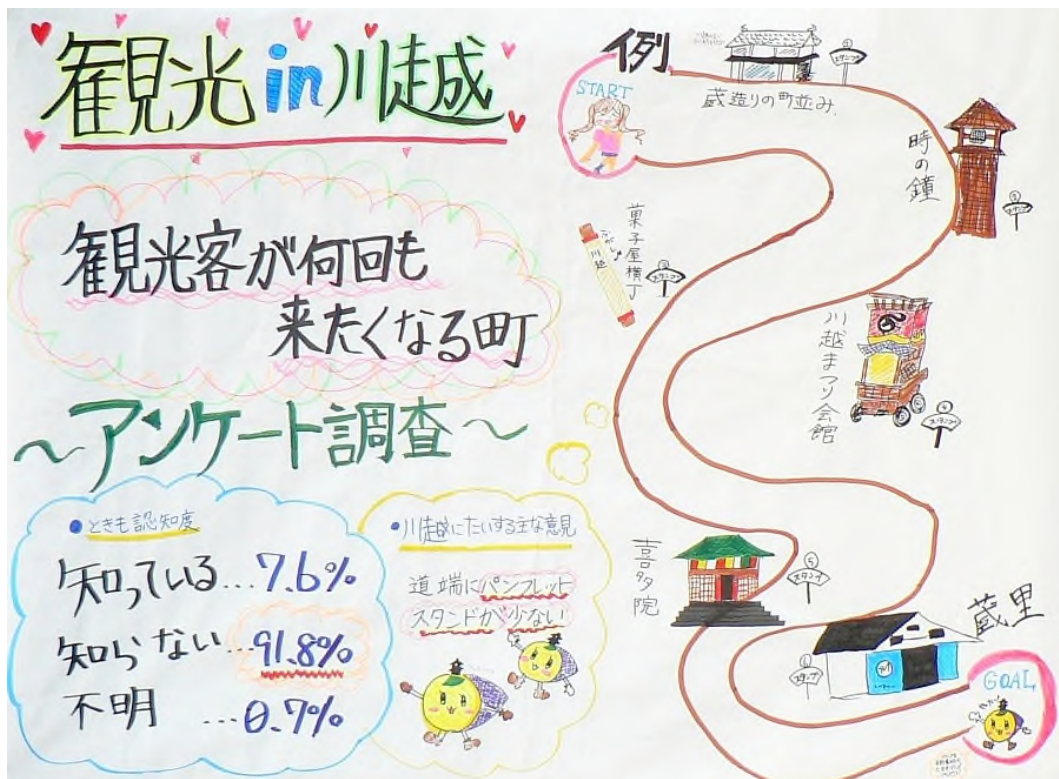 観光in川越
観光客が何回も
来たくなる町
～アンケート調査～
●ときも認知度
知っている…7.6%
知らない…91.8%
不明 …0.7%
●川越にたいする主な意見
道端にパンフレット
スタンドが少ない
例
START
蔵造りの町並み
①
スタンプ
時の鐘
②
スタンプ
菓子屋横丁
川越
③
スタンプ
川越まつり会館
④
スタンプ
喜多院
⑤
スタンプ
蔵里
⑥
スタンプ
GOAL